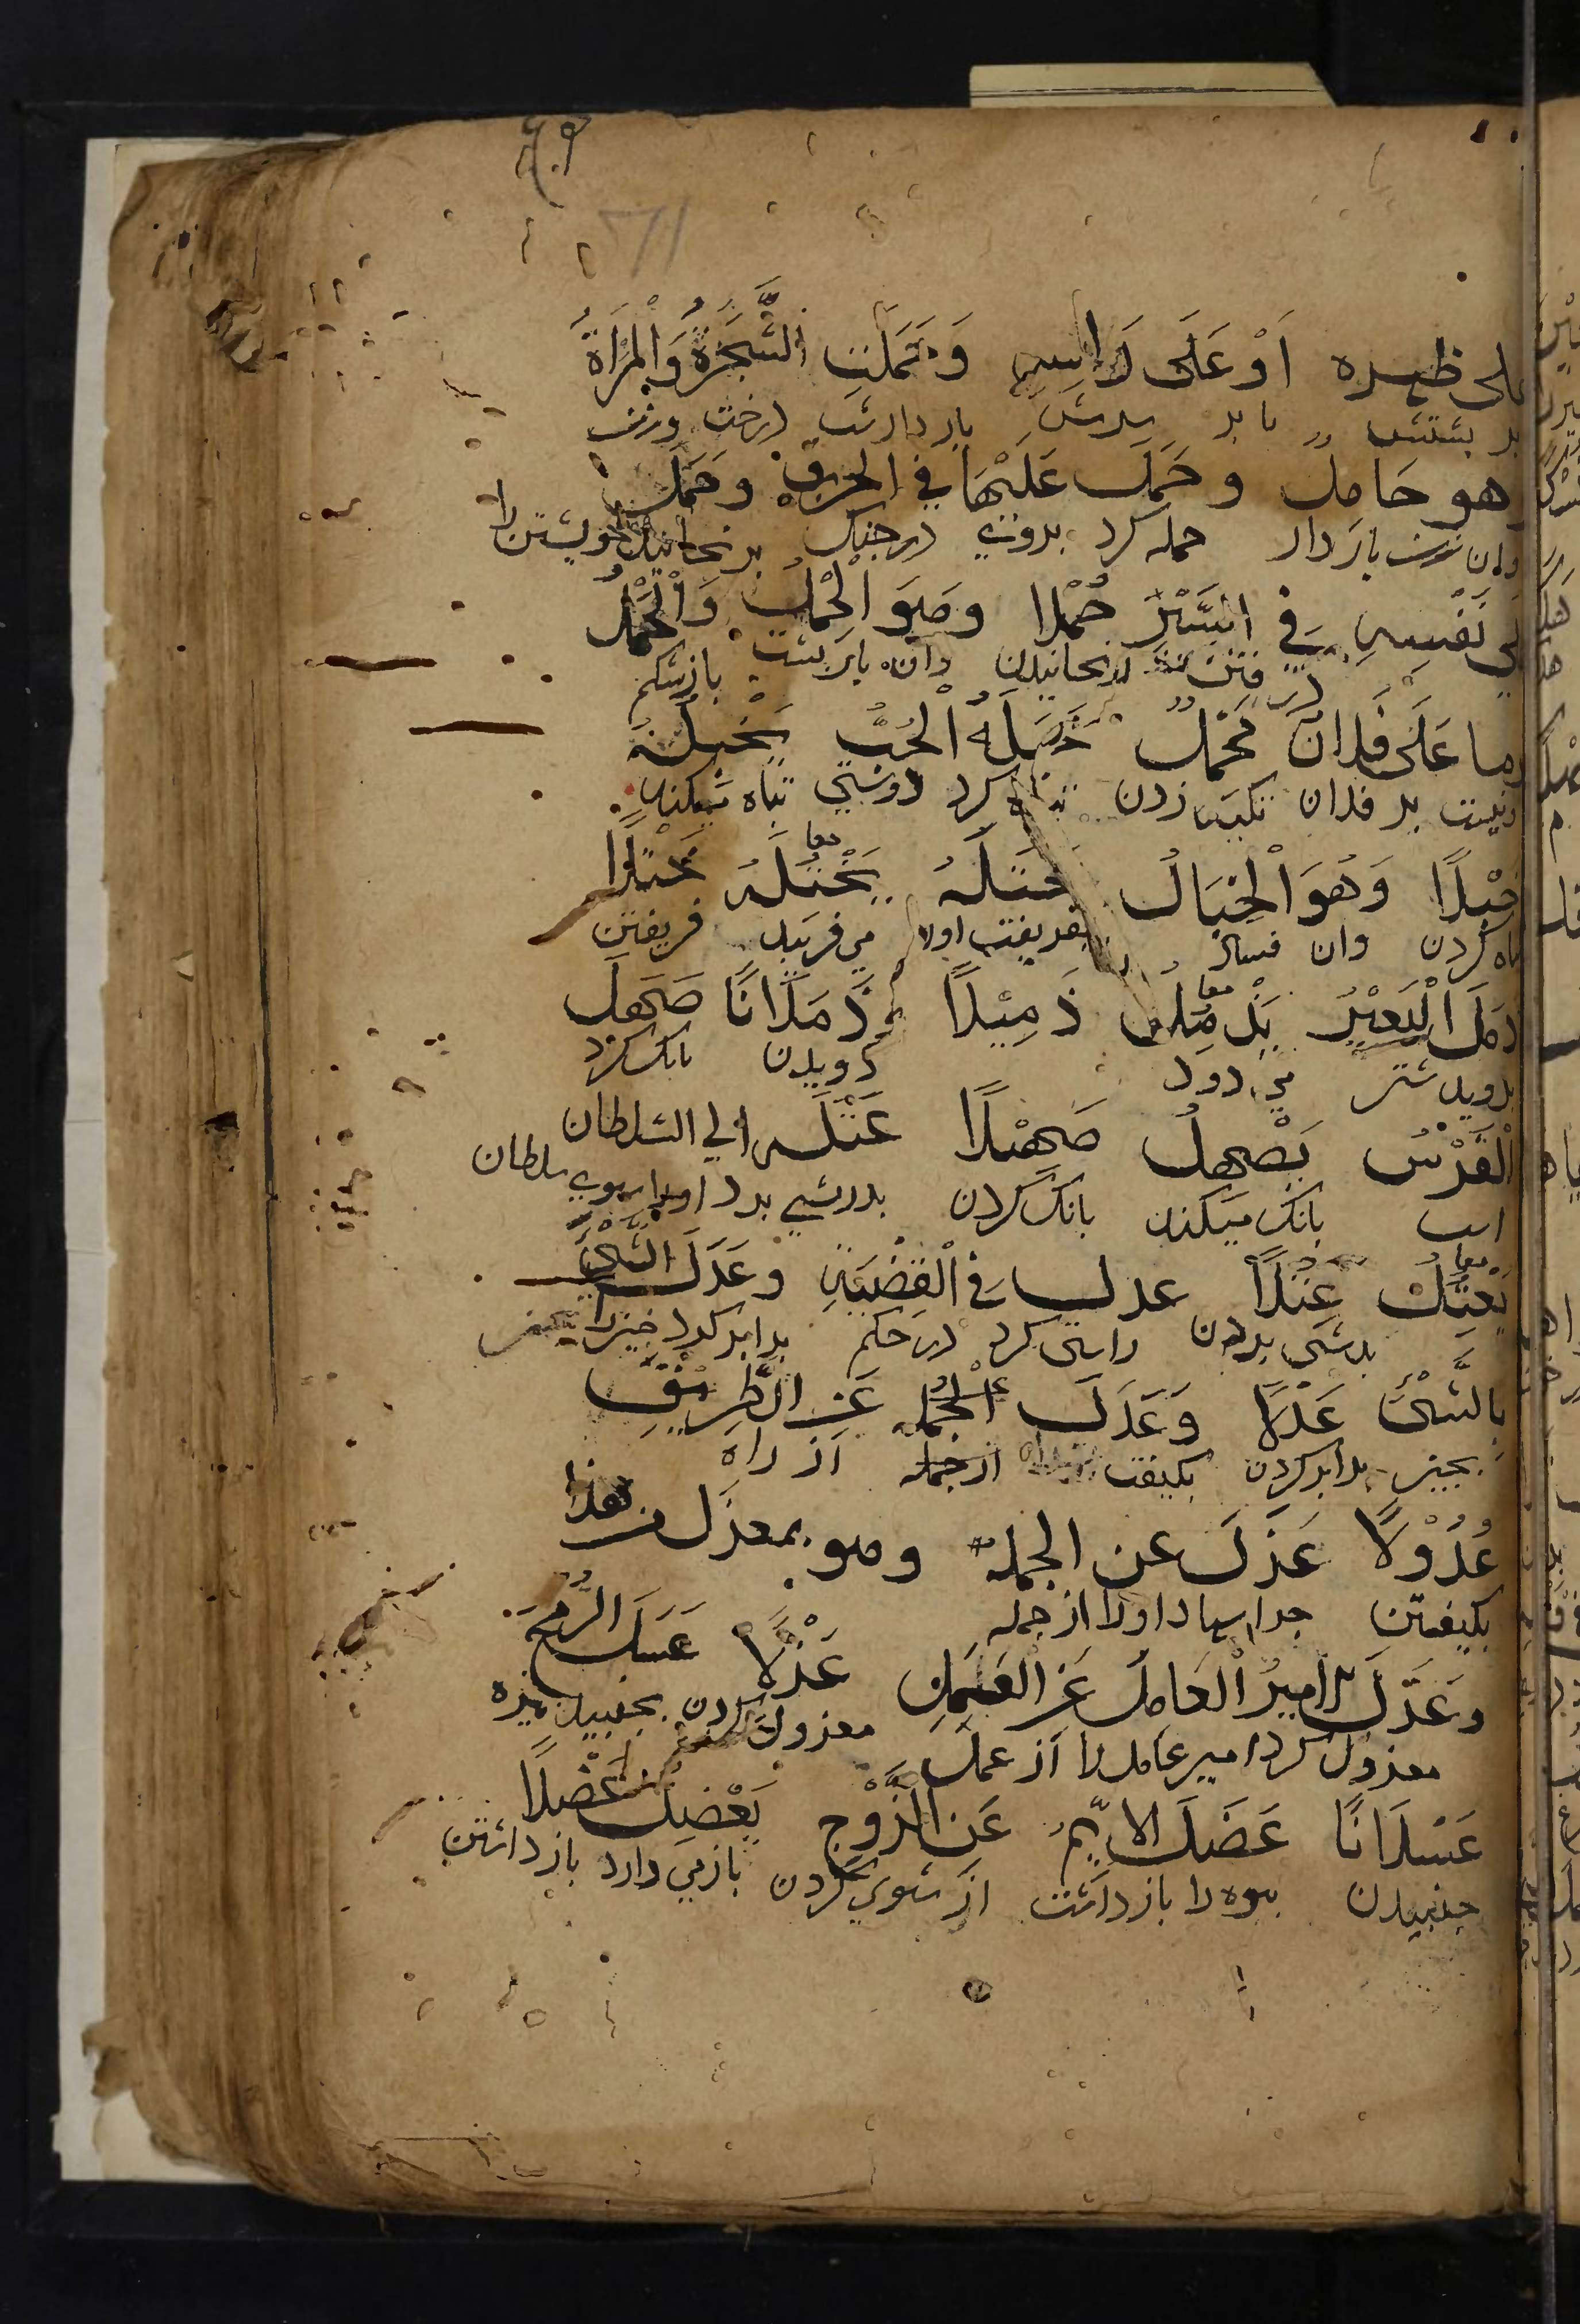 على ظهره اَوْ عَلَى رَاسِهِ وَحَمَلَتِ الشَّجَرَةُ وَالْمَرْاَةُ
بر پشتش یا بر سرش بار داشت درخت و زن
وهو حَامِلٌ و حَمَلَ عَلَيْهَا في الحربِ وحَمَلَ
وان زن باردار حمله کرد بروی در جنک برنجانید خویشتن را
على نَفْسِهِ فِي السَّيْرِ حَمْلا وهُوَ الْحِمْلُ وَالْحَمْلُ
در رفتن رنجانیدن وان بار پشت بار شکم
وما عَلَى فُلَانٍ مَحْمَلٌ خَبَلَهُ الْحُبُّ يَخْبِلُهُ
ونیست بر فلان تکیه زدن تباه کرد دوستی تباه میکند
خَبْلًا وَهُوَ الْخَبَالُ خَتَلَهُ يَخْتُلُهُ معا خَتْلًا
تباه کردن وان فساد بفریفت اورا می فریبد فریفتن
ذَمَلَ الْبَعِيْرُ يَذْمُلُ معا ذَمِيْلًا وذَمَلَانًا صَهَلَ
بدوید شتر می دود دویدن بانک کرد
الْفَرَسُ يَصْهِلُ صَهِيْلًا عَتَلَهُ الي السلطان
اسب بانک میکند بانک کردن بدرشتی برد اورا بسوی سلطان
يَعْتِلُ معا عَتْلًا عدل في الْقَضِيَّةِ وعَدَلَ الشَّيْءَ
بدرشتی بردن راستی کرد در حکم برابر کرد چیزرا
بِالشَّيْءِ عَدْلًا وَعَدَلَ عَنِ الطَّرِيْقِ
بچیز برابر کردن بکیفت از راه
عُدُوْلًا عَزَلَ عن الجملة وهو بمعزل من هذا
بکیفتن جدا اورا از جمله
وعَزَلَ الاميرُ الْعَامِلَ عَنِ الْعَمَلِ عَزْلًا عَسَلَ الرُّمْحُ
معزول کرد امیر عامل را از عمل معزول کردن بجنبید نیزه
عَسَلَانًا عَضَلَ الاَيِّمَ عَنِ الزَّوْجِ يَعْضِلُ عَضْلًا
جنبیدن بیوه را باز داشت از شوی کردن باز می دارد باز داشتن